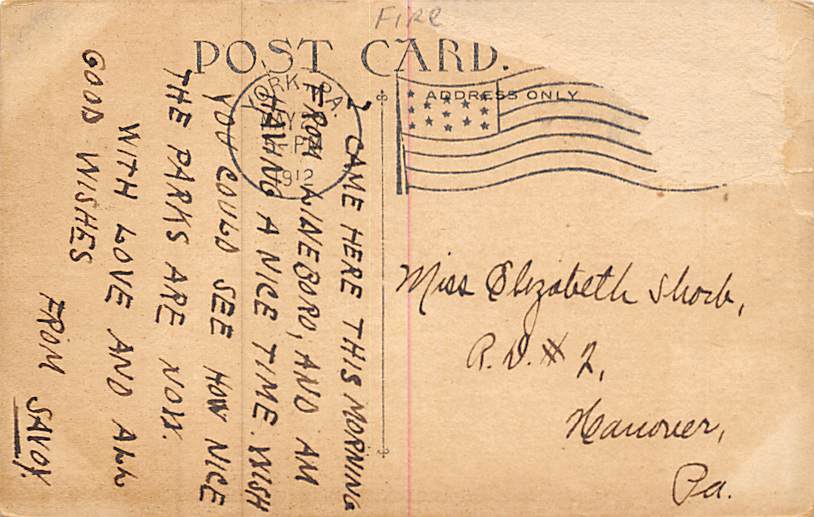 FIRE
POST CARD.
ADDRESS ONLY
YORK, PA.
1912
I CAME HERE THIS MORNING
FROM LINEBORO, AND AM
HAVING A NICE TIME. WISH
YOU COULD SEE HOW NICE
THE PARKS ARE NOW.
WITH LOVE AND ALL
GOOD WISHES
FROM SAVOY.
Miss Elizabeth Shorb,
R.D. # 2,
Hanover,
Pa.